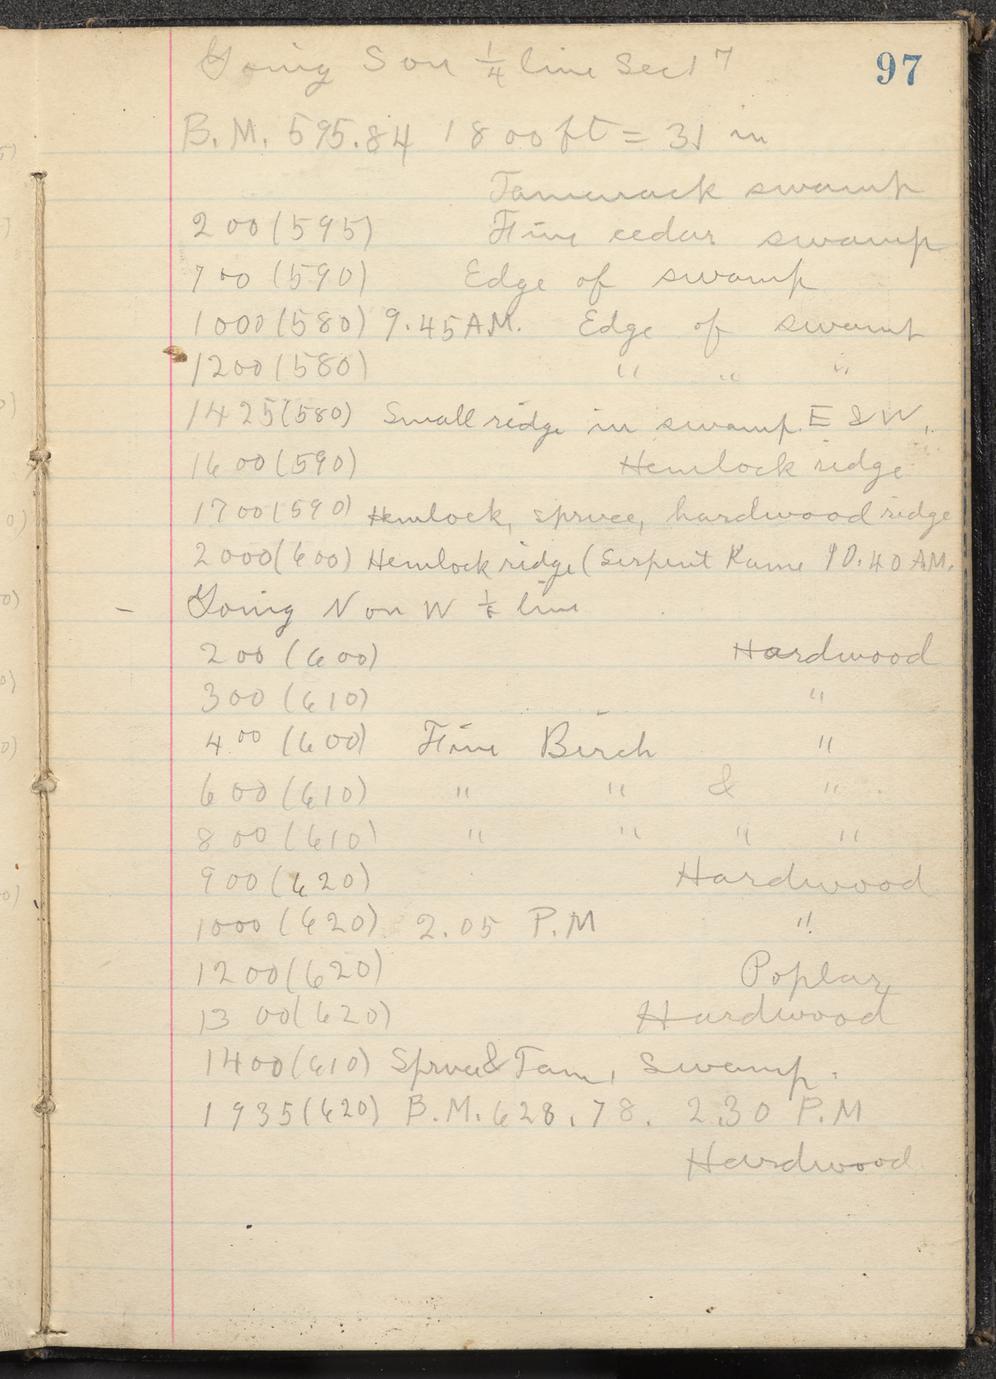 97
Going S on ¼ line Sec 17
B.M. 595.84 1800 ft = 31 m
Tamarack swamp
200 (595) Fine cedar swamp
700 (590) Edge of swamp
1000 (580) 9.45 AM. Edge of swamp
1200 (580) " " "
1425 (580) Small ridge in swamp. E & W.
1600 (590) Hemlock ridge
1700 (590) Hemlock, spruce, hardwood ridge
2000 (600) Hemlock ridge (Serpent Kame 10.40 AM.
- Going N on W ⅛ line
200 (600) Hardwood
300 (610) "
400 (600) Fine Birch "
600 (610) " " & "
800 (610) " " " "
900 (620) Hardwood
1000 (620) 2.05 P.M "
1200 (620) Poplar
1300 (620) Hardwood
1400 (610) Spruce & Tam. Swamp.
1935 (620) B.M. 628.78. 2.30 P.M
Hardwood